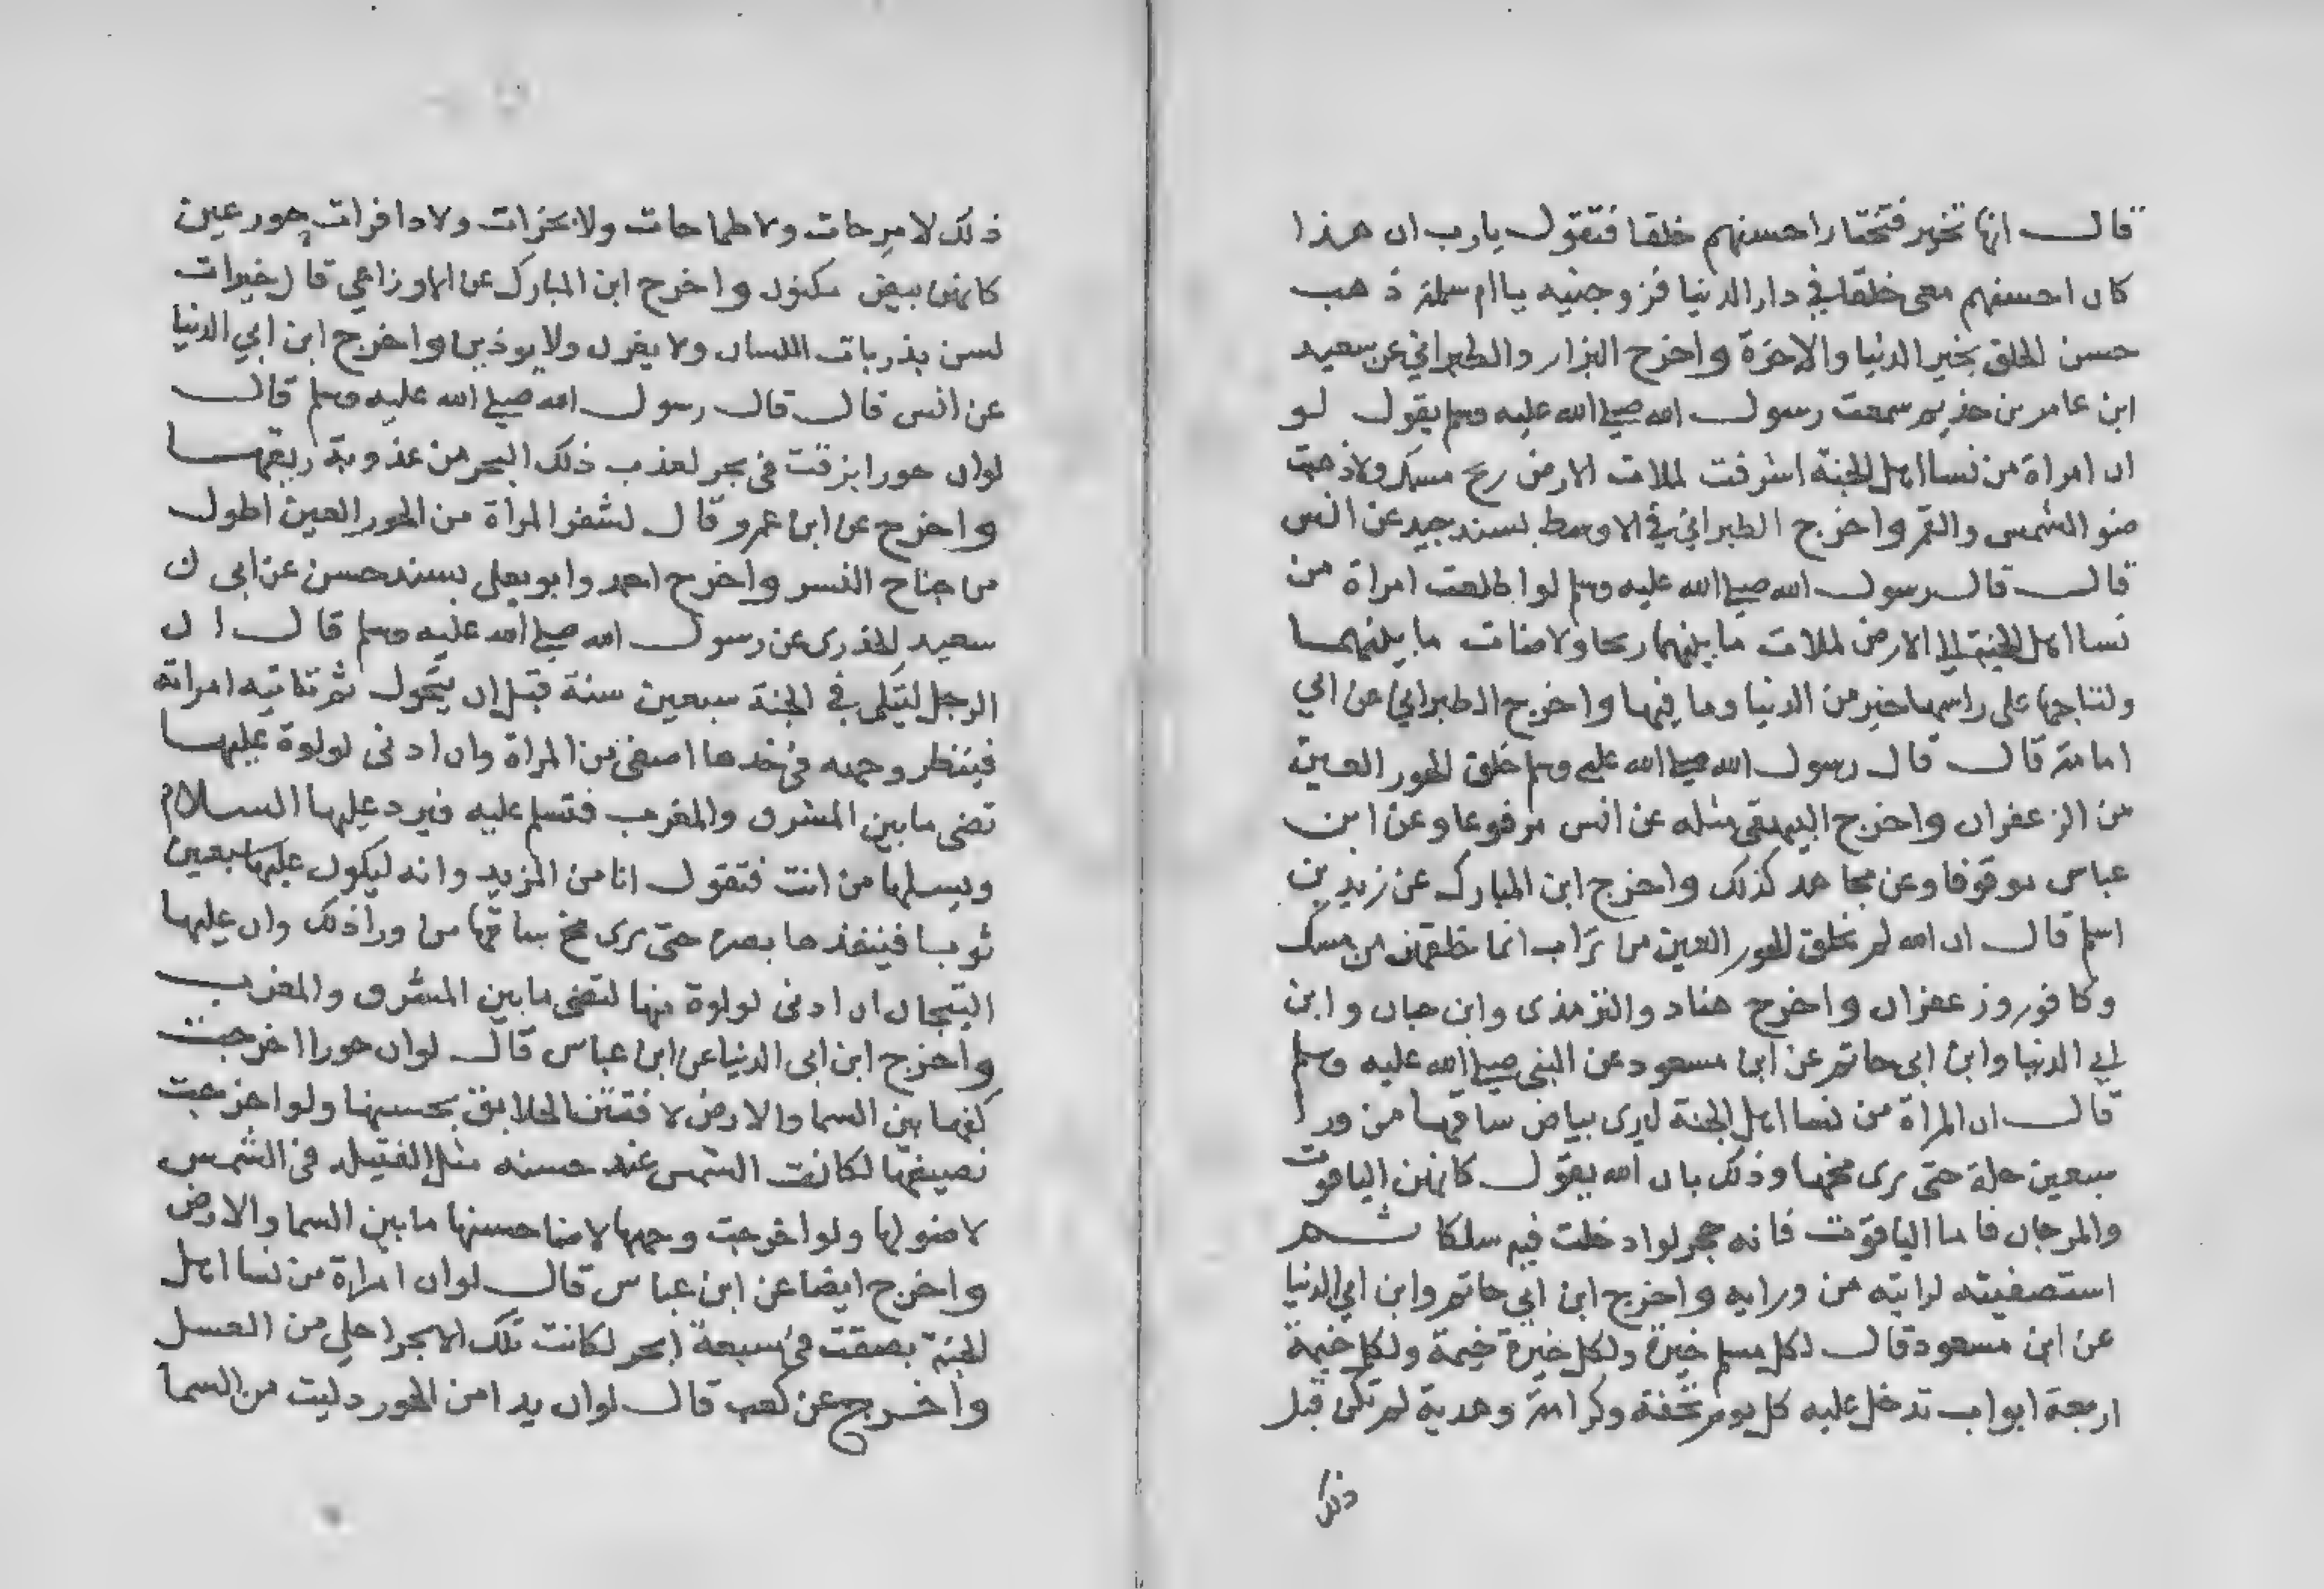 قال انها تخير فتختار احسنهم خلقا فتقول يارب ان هذا
كان احسنهم معى خلقا في دار الدنيا فزوجنيه ياام سلمة ذهب
حسن الخلق بخير الدنيا والاخرة واخرج البزار والطبراني عن سعيد
ابن عامر بن حذيم سمعت رسول الله صلى الله عليه وسلم يقول لو
ان امراة من نسا اهل الجنة اشرفت لملات الارض ريح مسك ولاذهبت
ضو الشمس والقمر واخرج الطبراني في الاوسط بسند جيد عن انس
قال قال رسول الله صلى الله عليه وسلم لو اطلعت امراة من
نسا اهل الجنة الى الارض لملات ما بينهما ريحا ولاضات ما بينهما
ولتاجها على راسها خير من الدنيا وما فيها واخرج الطبراني عن ابي
امامة قال قال رسول الله صلى الله عليه وسلم خلق الحور العين
من الزعفران واخرج البيهقي مثله عن انس مرفوعا وعن ابن
عباس موقوفا وعن مجاهد كذلك واخرج ابن المبارك عن زيد بن
اسلم قال ان الله لم يخلق الحور العين من تراب انما خلقهن من مسك
وكافور وزعفران واخرج هناد والترمذى وابن حبان وابن
ابي الدنيا وابن ابى حاتم عن ابن مسعود عن النبي صلى الله عليه وسلم
قال ان المراة من نسا اهل الجنة ليرى بياض ساقها من ورا
سبعين حلة حتى يرى مخها وذلك بان الله يقول كانهن الياقوت
والمرجان فاما الياقوت فانه حجر لو ادخلت فيه سلكا ثم
استصفيته لرايته من ورايه واخرج ابن ابي حاتم وابن ابي الدنيا
عن ابن مسعود قال لكل مسلم خيرة ولكل خيرة خيمة ولكل خيمة
اربعة ابواب تدخل عليه كل يوم تحفة وكرامة وهدية لم تكن قبل
ذلك
ذلك لا مرحات ولا طماحات ولا بخرات ولا دافرات حور عين
كانهن بيض مكنون واخرج ابن المبارك عن الاوزاعي قال خيرات
لسن بذربات اللسان ولا يغرن ولا يوذين واخرج ابن ابي الدنيا
عن انس قال قال رسول الله صلى الله عليه وسلم قال
لوان حورا بزقت في بحر لعذب ذلك البحر من عذوبة ريقها
واخرج عن ابن عمرو قال لشفر المراة من الحور العين اطول
من جناح النسر واخرج احمد وابو يعلى بسند حسن عن ابى ن
سعيد الخدرى عن رسول الله صلى الله عليه وسلم قال ان
الرجل ليتكى في الجنة سبعين سنة قبل ان يتحول ثم تاتيه امراته
فينظر وجهه في خدها اصفى من المراة وان ادنى لولوة عليها
تضى ما بين المشرق والمغرب فتسلم عليه فيرد عليها السلام
ويسلها من انت فتقول انا من المزيد وانه ليكون عليها سبعين
ثوبا فينفذها بصره حتى يرى مخ ساقها من ورا ذلك وان عليها
التيجان ان ادنى لولوة منها لتضى ما بين المشرق والمغرب
واخرج ابن ابى الدنيا عن ابن عباس قال لوان حورا اخرجت
كفها بين السما والارض لافتتن الخلايق بحسنها ولو اخرجت
نصيفها لكانت الشمس عند حسنه مثل الفتيله في الشمس
لا ضو لها ولو اخرجت وجهها لاضا حسنها ما بين السما والارض
واخرج ايضا عن ابن عباس قال لوان امراة من نسا اهل
الجنة بصقت في سبعة ابحر لكانت تلك الابحر احلى من العسل
واخرج عن كعب قال لوان يدا من الحور دليت من السما